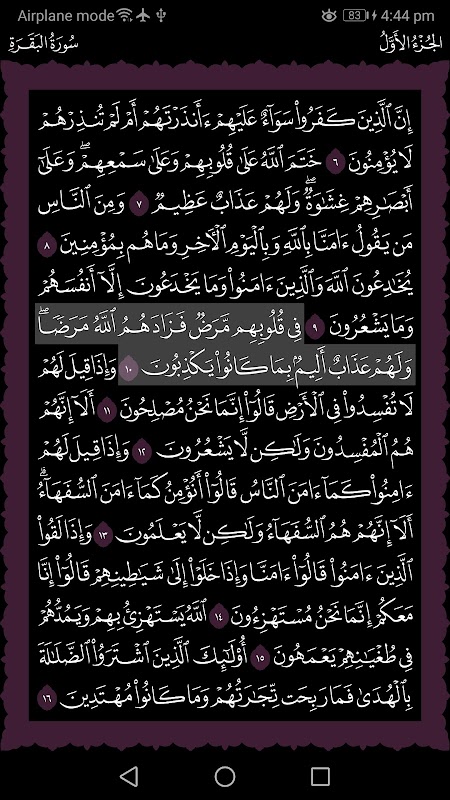 Airplane mode 83 4:44 pm
الجُزْءُ الأَوَّلُ سُورَةُ البَقَرَةِ
إِنَّ ٱلَّذِينَ كَفَرُوا۟ سَوَآءٌ عَلَيْهِمْ ءَأَنذَرْتَهُمْ أَمْ لَمْ تُنذِرْهُمْ
لَا يُؤْمِنُونَ ٦ خَتَمَ ٱللَّهُ عَلَىٰ قُلُوبِهِمْ وَعَلَىٰ سَمْعِهِمْ ۖ وَعَلَىٰٓ
أَبْصَـٰرِهِمْ غِشَـٰوَةٌ ۖ وَلَهُمْ عَذَابٌ عَظِيمٌ ٧ وَمِنَ ٱلنَّاسِ
مَن يَقُولُ ءَامَنَّا بِٱللَّهِ وَبِٱلْيَوْمِ ٱلْـَٔاخِرِ وَمَا هُم بِمُؤْمِنِينَ ٨
يُخَـٰدِعُونَ ٱللَّهَ وَٱلَّذِينَ ءَامَنُوا۟ وَمَا يَخْدَعُونَ إِلَّآ أَنفُسَهُمْ
وَمَا يَشْعُرُونَ ٩ فِى قُلُوبِهِم مَّرَضٌ فَزَادَهُمُ ٱللَّهُ مَرَضًا ۖ
وَلَهُمْ عَذَابٌ أَلِيمٌۢ بِمَا كَانُوا۟ يَكْذِبُونَ ١٠ وَإِذَا قِيلَ لَهُمْ
لَا تُفْسِدُوا۟ فِى ٱلْأَرْضِ قَالُوٓا۟ إِنَّمَا نَحْنُ مُصْلِحُونَ ١١ أَلَآ إِنَّهُمْ
هُمُ ٱلْمُفْسِدُونَ وَلَـٰكِن لَّا يَشْعُرُونَ ١٢ وَإِذَا قِيلَ لَهُمْ
ءَامِنُوا۟ كَمَآ ءَامَنَ ٱلنَّاسُ قَالُوٓا۟ أَنُؤْمِنُ كَمَآ ءَامَنَ ٱلسُّفَهَآءُ ۗ
أَلَآ إِنَّهُمْ هُمُ ٱلسُّفَهَآءُ وَلَـٰكِن لَّا يَعْلَمُونَ ١٣ وَإِذَا لَقُوا۟
ٱلَّذِينَ ءَامَنُوا۟ قَالُوٓا۟ ءَامَنَّا وَإِذَا خَلَوْا۟ إِلَىٰ شَيَـٰطِينِهِمْ قَالُوٓا۟ إِنَّا
مَعَكُمْ إِنَّمَا نَحْنُ مُسْتَهْزِءُونَ ١٤ ٱللَّهُ يَسْتَهْزِئُ بِهِمْ وَيَمُدُّهُمْ
فِى طُغْيَـٰنِهِمْ يَعْمَهُونَ ١٥ أُو۟لَـٰٓئِكَ ٱلَّذِينَ ٱشْتَرَوُا۟ ٱلضَّلَـٰلَةَ
بِٱلْهُدَىٰ فَمَا رَبِحَت تِّجَـٰرَتُهُمْ وَمَا كَانُوا۟ مُهْتَدِينَ ١٦